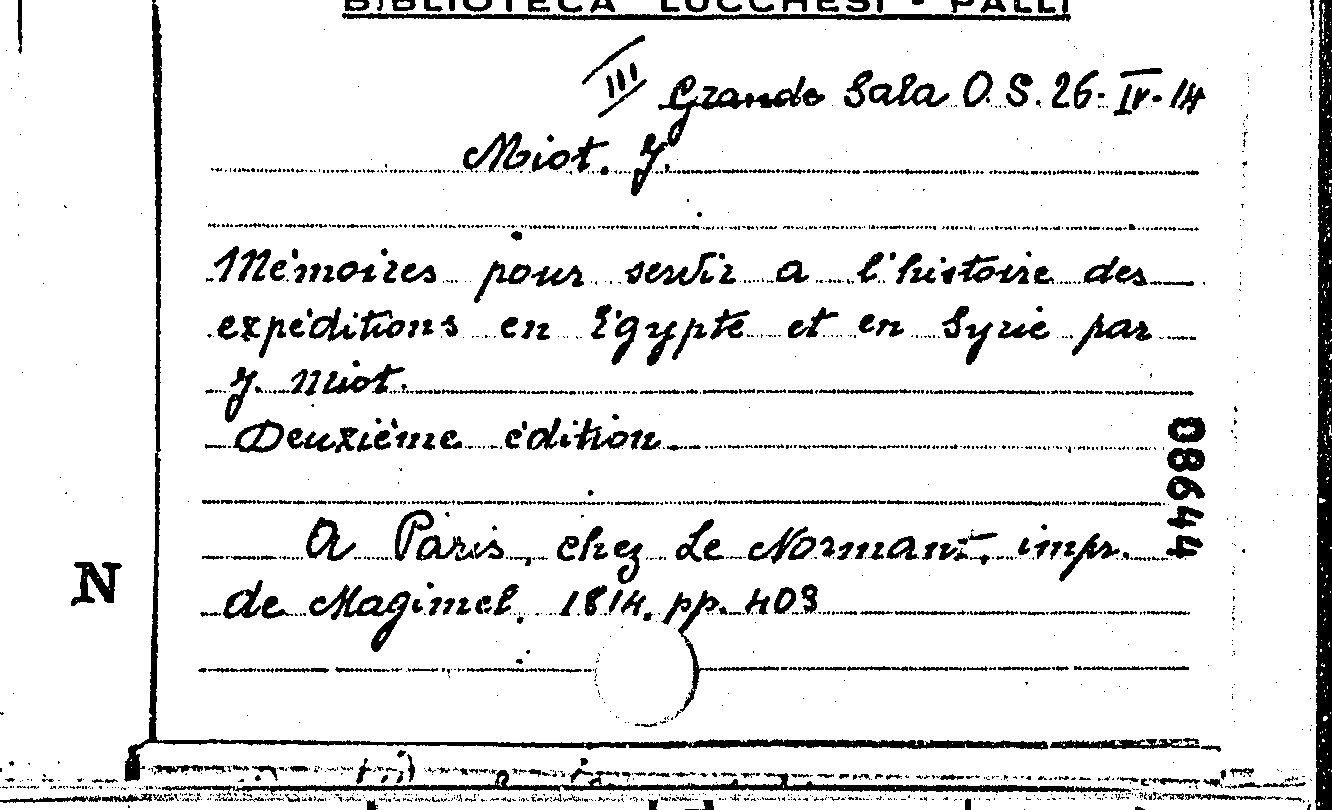 BIBLIOTECA LUCCHESI - PALLI
III Grande Sala O. S. 26-IV-14
Miot. J.
Mémoires pour servir a l'histoire des
expéditions en Egypte et en Syrie par
J. Miot.
Deuxième édition.
A Paris, chez Le Normant, impr.
de Magimel, 1814. pp. 403
08644
N